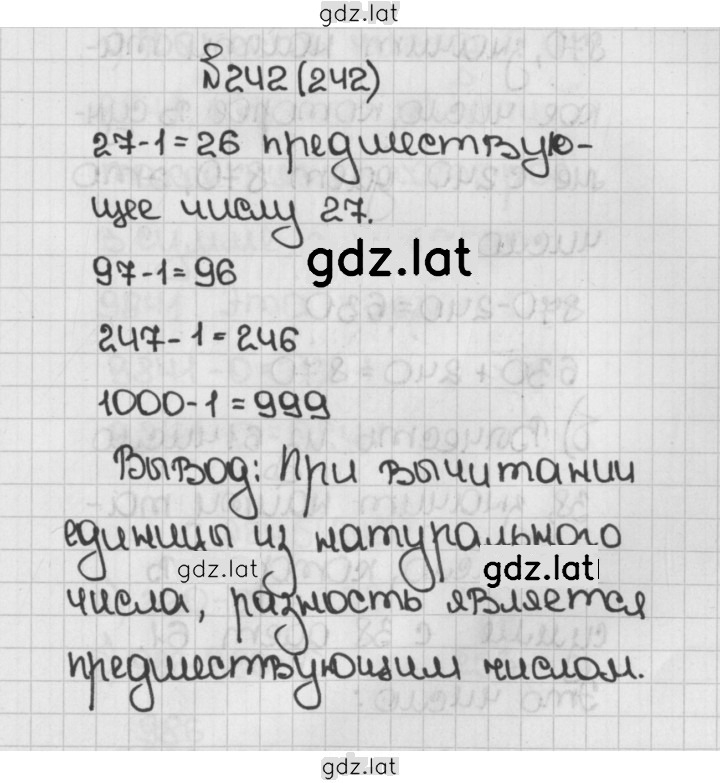 gdz.lat
№242 (242)
27-1=26 предшествую-
щее числу 27.
gdz.lat
97-1=96
247-1=246
1000-1=999
Вывод: При вычитании
единицы из натурального
gdz.lat
gdz.lat
числа, разность является
предшествующим числом.
gdz.lat